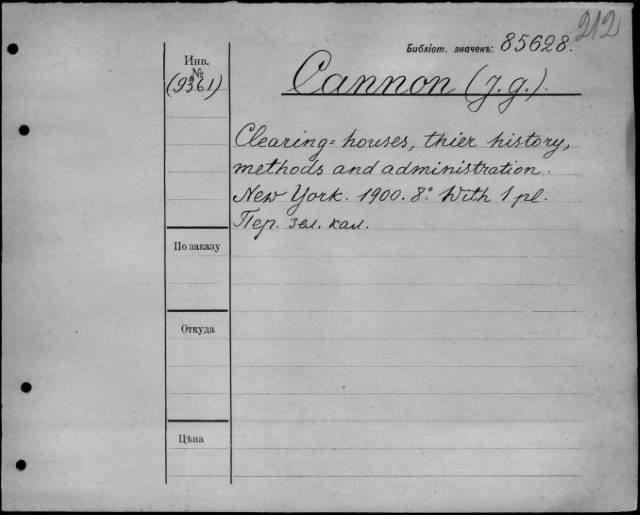 212
Библіот. значекъ: 85628.
Инв.
№
(9361)
Cannon (J. G.).
Clearing=houses, thier history,
methods and administration.
New York. 1900. 8°. With 1 pl.
Пер. зел. кал.
По заказу
Откуда
Цѣна